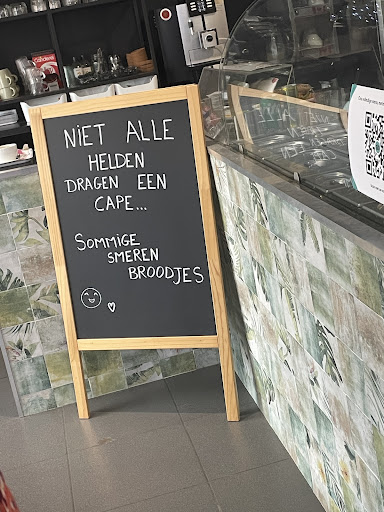 NIET ALLE
HELDEN
DRAGEN EEN
CAPE...
SOMMIGE
SMEREN
BROODJES